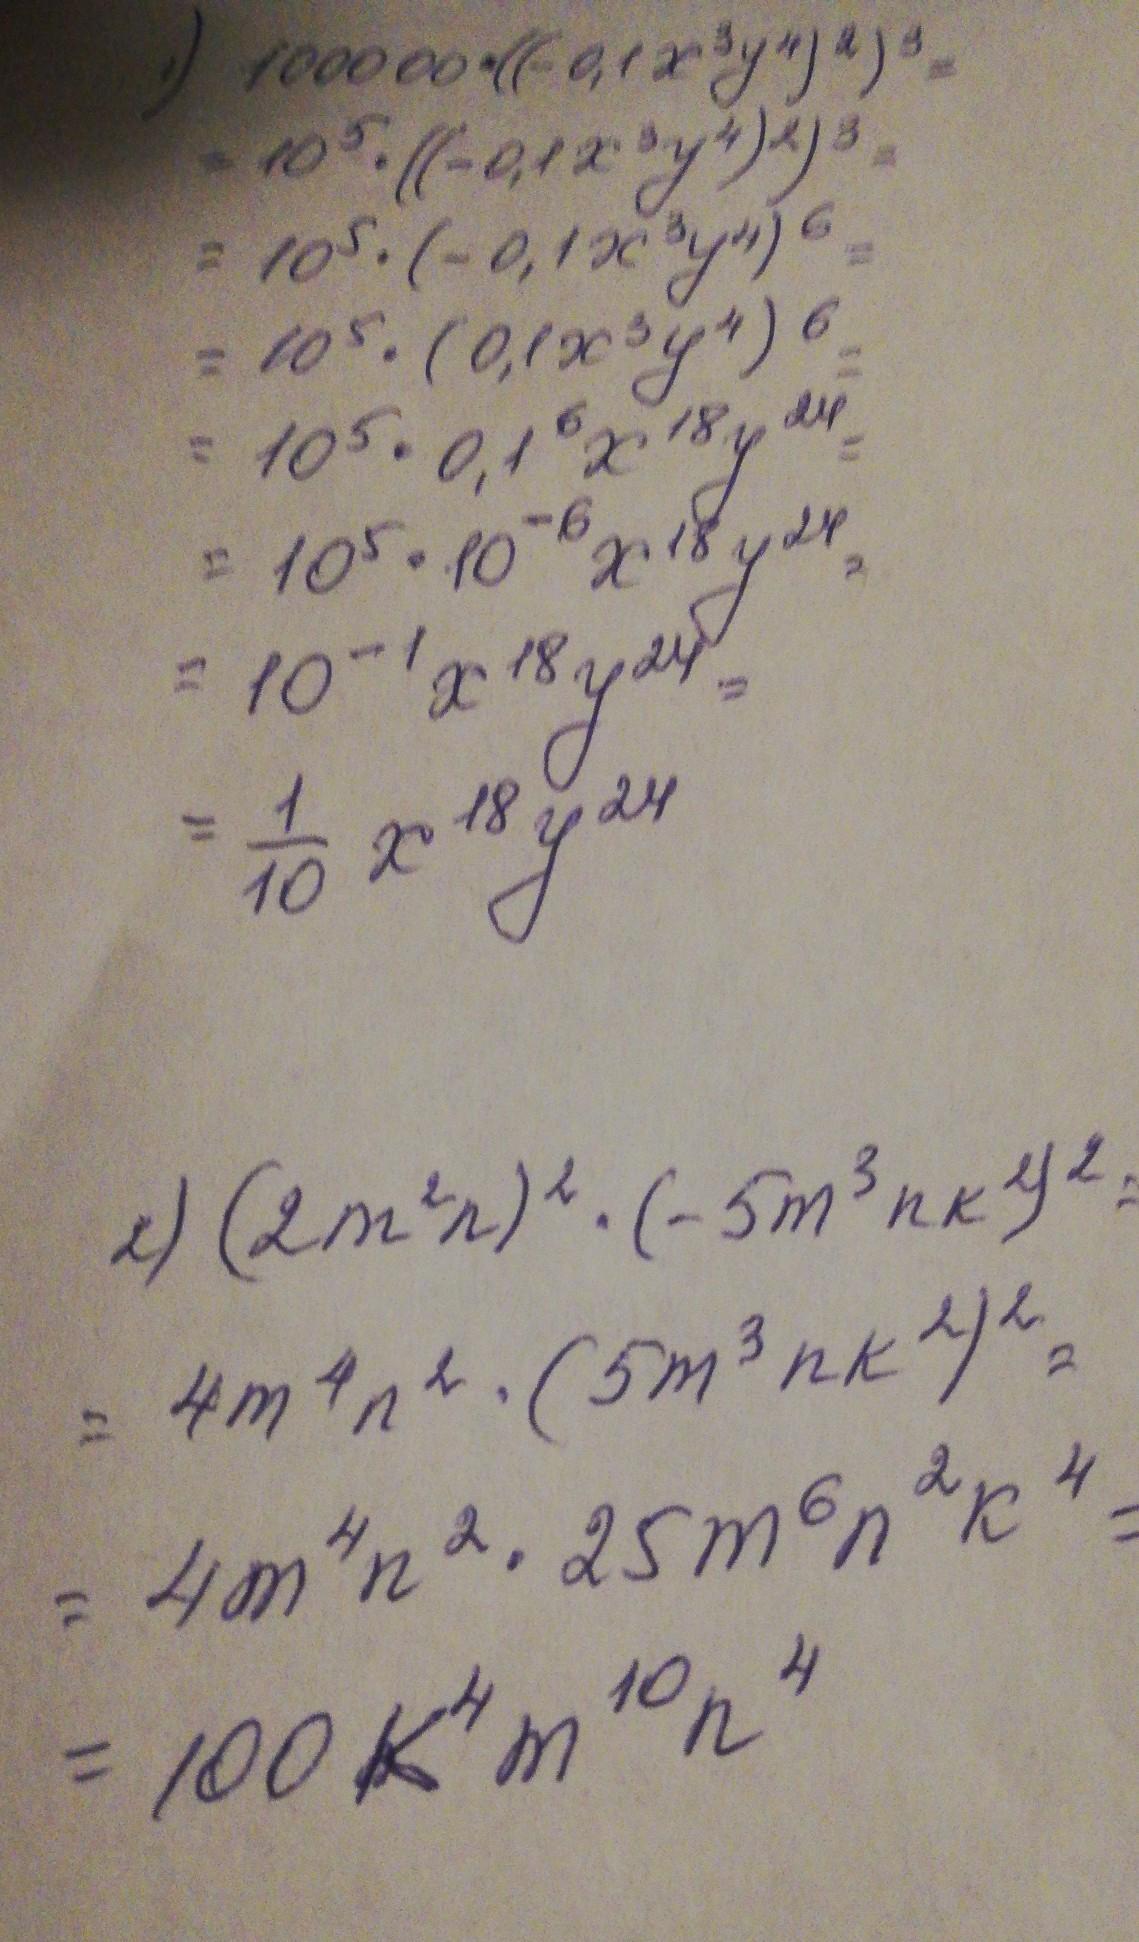 1) 100000·((-0,1x³y⁴)²)³=
= 10⁵·((-0,1x³y⁴)²)³=
= 10⁵·(-0,1x³y⁴)⁶=
= 10⁵·(0,1x³y⁴)⁶=
= 10⁵·0,1⁶x¹⁸y²⁴=
= 10⁵·10⁻⁶x¹⁸y²⁴=
= 10⁻¹x¹⁸y²⁴=
= 1/10 x¹⁸y²⁴
2) (2m²n)²·(-5m³nк²)²=
= 4m⁴n²·(5m³nк²)²=
= 4m⁴n²·25m⁶n²к⁴=
= 100к⁴m¹⁰n⁴